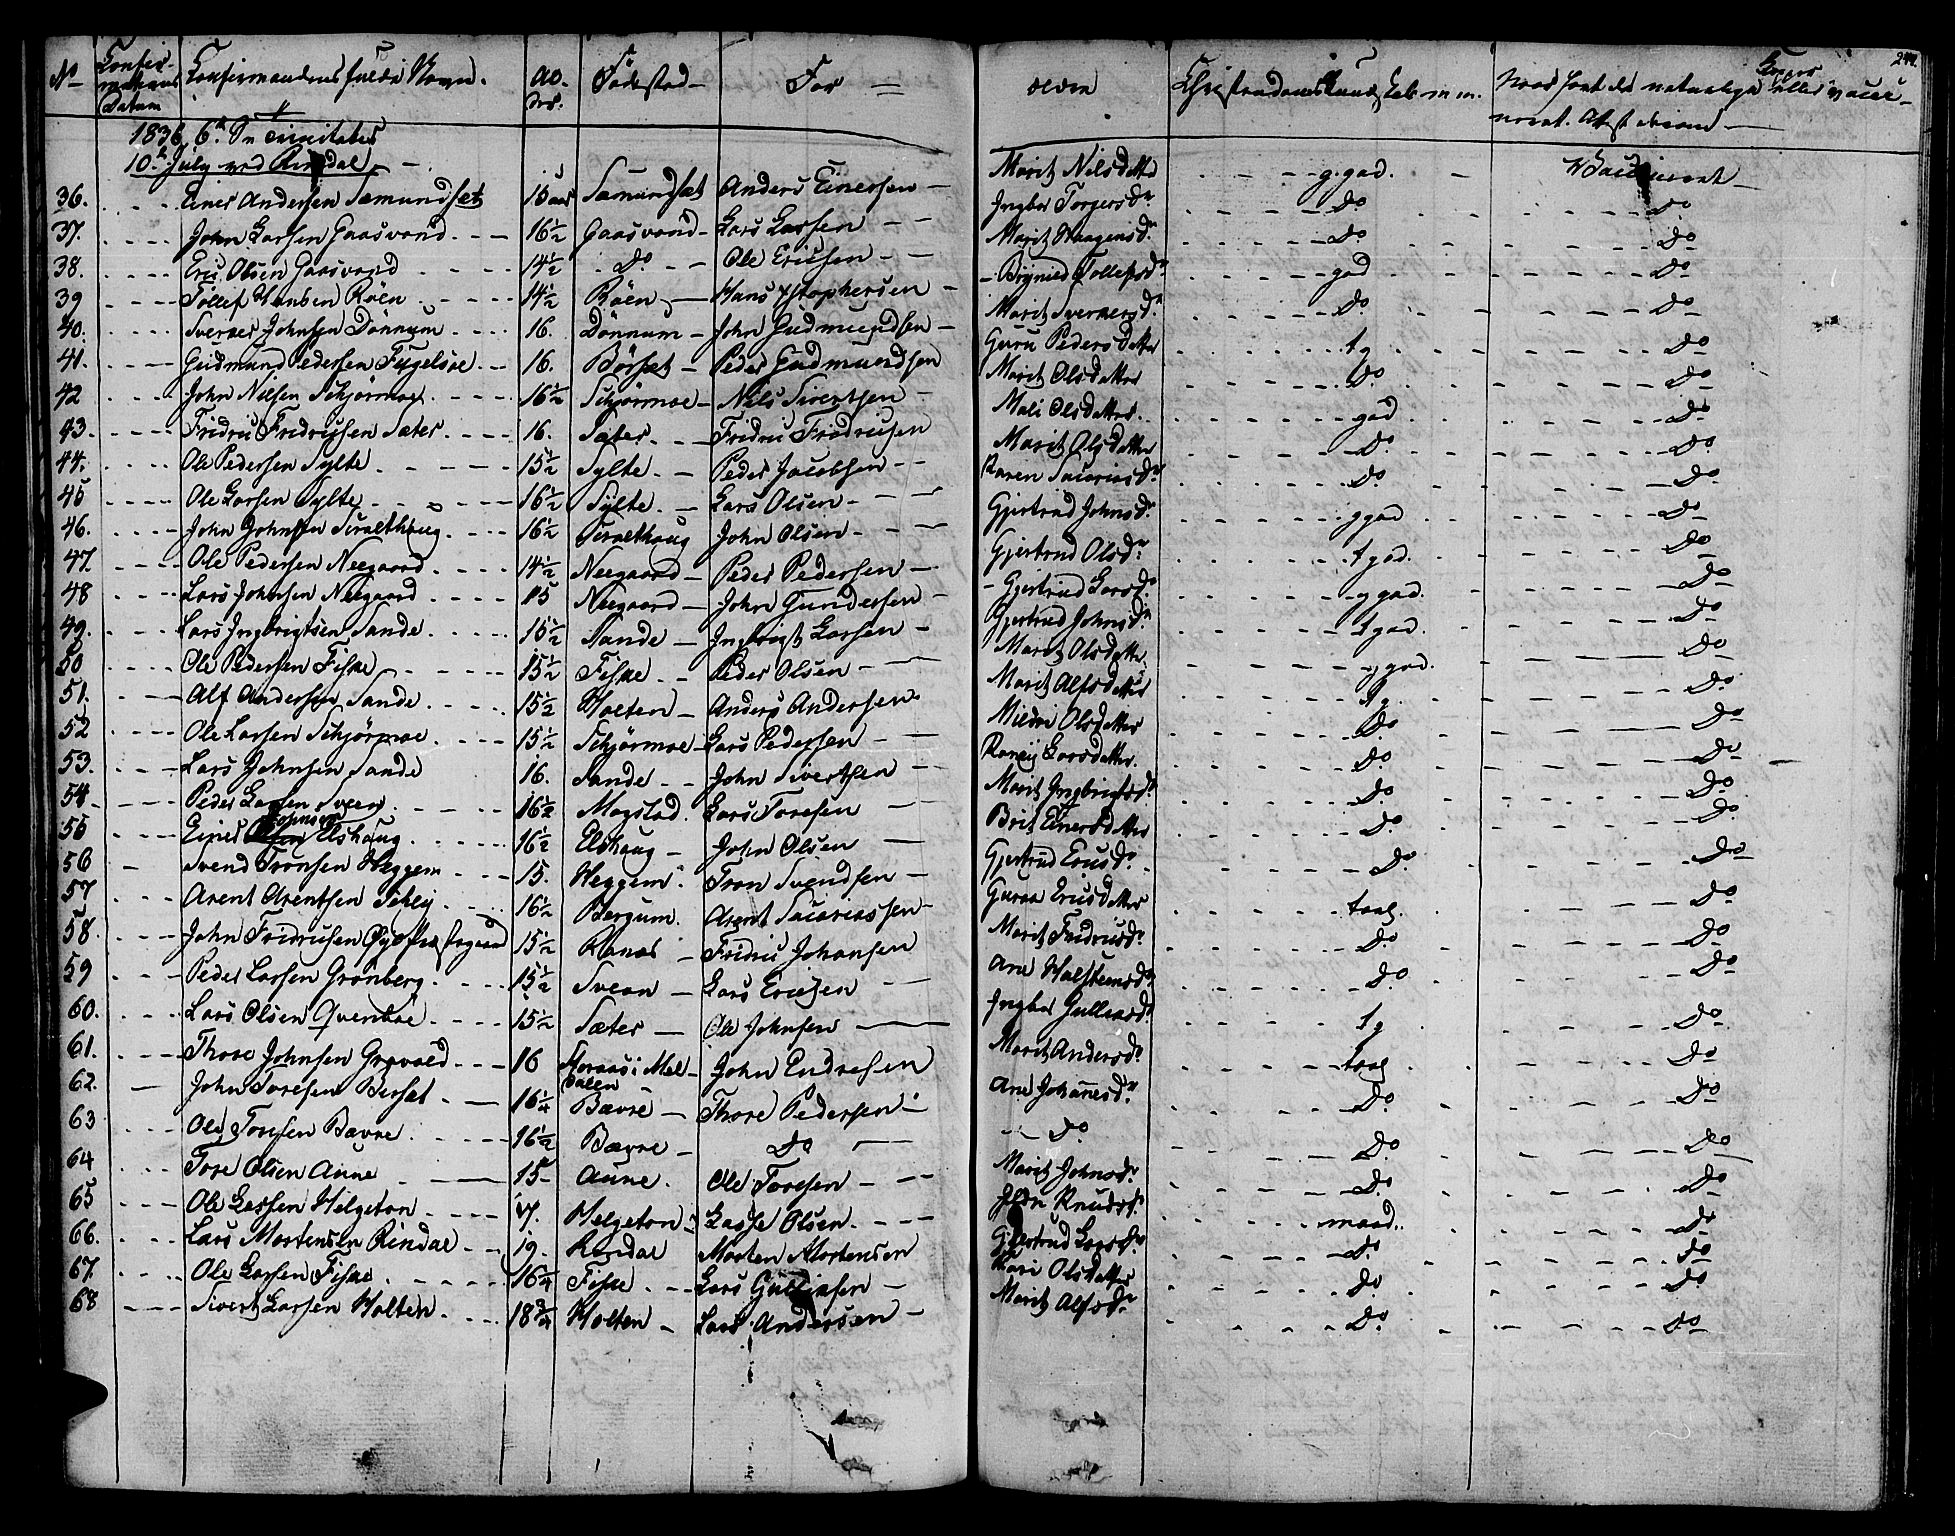 244.
No Confirmations Datum Confirmandens fulde Navn. Fødested For= ældre Christendoms Kundskab m.m. Naar havt de naturlige Kopper eller vaccineret. Attest derom
1836, 6te Sn Trinitates
10de July ved Rindal
36. Einer Andersen Sæmundset 15 aar Sæmundset Anders Einersen Marit Nilsdatter g. gad. Vaccineret
37. John Larsen Gaasvand 16½ Gaasvand Lars Larsen Ingbor Torgersdr Do Do
38. Eric Olsen Gaasvand 14½ Do Ole Ericsen Marit Haagensdr Do Do
39 Tollef Hansen Röen 14½ Röen Hans Xstophersen Tollefsdr gad Do
40. Sverker Johnsen Dönnum 16. Dönnum John Gudmundsen Marit Sverkersdr Do Do
41. Gudmund Pedersen Fugelsöe 16. Börset Peder Gudmundsen Guru Pedersdatter tg Do
42 John Nilsen Schjörmoe 16½ Schjörmoe Nils Sivertsen Marit Olsdatter Do Do
43. Fridric Fridricsen Sæter 16. Sæter Fridric Fridricsen Mali Olsdatter gad Do
44. Ole Pedersen Sylte 15½ Sylte Peder Jacobsen Marit Olsdatter Do Do
45 Ole Larsen Sylte 16½ Sylte Lars Olsen Karen Sacariasdr Do Do
46. John Johnsen Tiraethaug 16½ Tiraethaug John Olsen Gjertrud Johnsdr ggad Do
47. Ole Pedersen Neegaard 14½ Neegaard Peder Pedersen Gjertrud Olsdr tgad. Do
48 Lars Johnsen Neegaard 15 Neegaard John Gundersen Gjertrud Larsdr ggad. Do
49. Lars Ingbrigtsen Sande 15½ Sande Ingbrigt Larsen Gjertrud Johnsdr tgad. Do
50 Ole Pedersen Fiske 15½ Fiske Peder Olsen Marit Olsdatter ggad. Do
51. Alf Andersen Sande 15½ Holten Anders Andersen Marit Alfsdatter tg. Do
52 Ole Larsen Schjörmoe 15½ Schjörmoe Lars Pedersen Mildri Olsdatter Do Do
53. Lars Johnsen Sande 16. Sande John Sivertsen Larsdatter Do Do
54 Peder Larsen Sveen 16½ Mogstad Lars Toresen Marit Ingbrigtsdr Do Do
55 Einer Johnsen Elshaug 16½ Elshaug John Olsen Brit Einersdatter Do Do
56 Svend Tronsen Heggem 15. Heggem Tron Svendsen Gjertrud Ericsdr Do Do
57 Arent Arentsen Schey 16½ Bergum. Arent Sacariassen Guroa Ericsdatter taal. Do
58. John Fridricsen 15½ Ranæs Fridric Johansen Marit Fridricsdr Do Do
59 Peder Larsen Grønberg 15½ Svean Lars Ericsen Ane Halsteensdr Do Do
60. Lars Olsen Qvenboe 15½ Sæter Ole Johnsen Ingbor Gullicsdr tg Do
61. Thore Johnsen Grøvold 16 Horaas i Meldalen John Endresen Marit Andersdr taal Do
62. John Toresen Berset 16¼ Bævre Thore Pedersen Ane Johannesdr Do Do
63 Ole Toresen Bævre 16½ Bævre Do Do Do Do
64 Tore Olsen Aune 15 Aune. Ole Toresen Marit Johnsdr Do Do
65 Ole Lassen Helgeton 17. Helgeton Lasse Olsen Knudsdr maad. Do
66. Lars Mortensen Rindal 19. Rindal Morten Mortensen Gjertrud Larsdr Do Do
67. Ole Larsen Fiske 16¼ Fiske Lars Gullicsen Kari Olsdatter Do Do
68 Sivert Larsen Holten 18¾ Holten Lars Andersen Marit Alfsdr Do Do